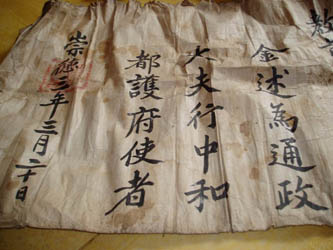 金述為通政
大夫行中和
都護府使者
崇德三年三月二十日